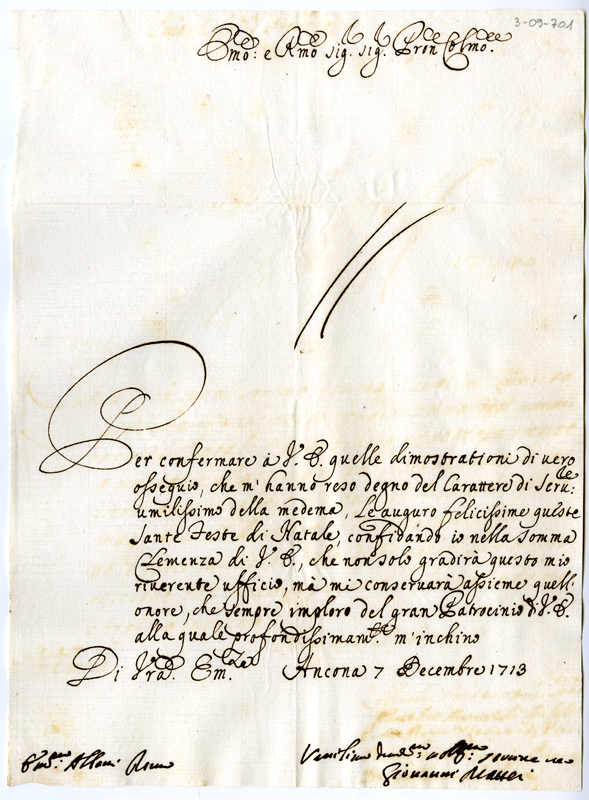 3-09-701
Emo: e Rmo sig. sig. Pron Colmo.
Per confermare à V. E. quelle dimostrationi di vero
ossequio, che m'hanno reso degno del Carattere di Seru:re
umilissimo della medema, Le auguro felicissime queste
Sante Feste di Natale, confidando io nella somma
Clemenza di V. E., che non solo gradirà questo mio
riverente ufficio, mà mi conservarà assieme quell'
onore, che sempre imploro del gran Patrocinio di V. E.
alla quale profondissimam.te m'inchino
Di Vra Em.za Ancona 7 Decembre 1713
Albani Roma
Giovanni